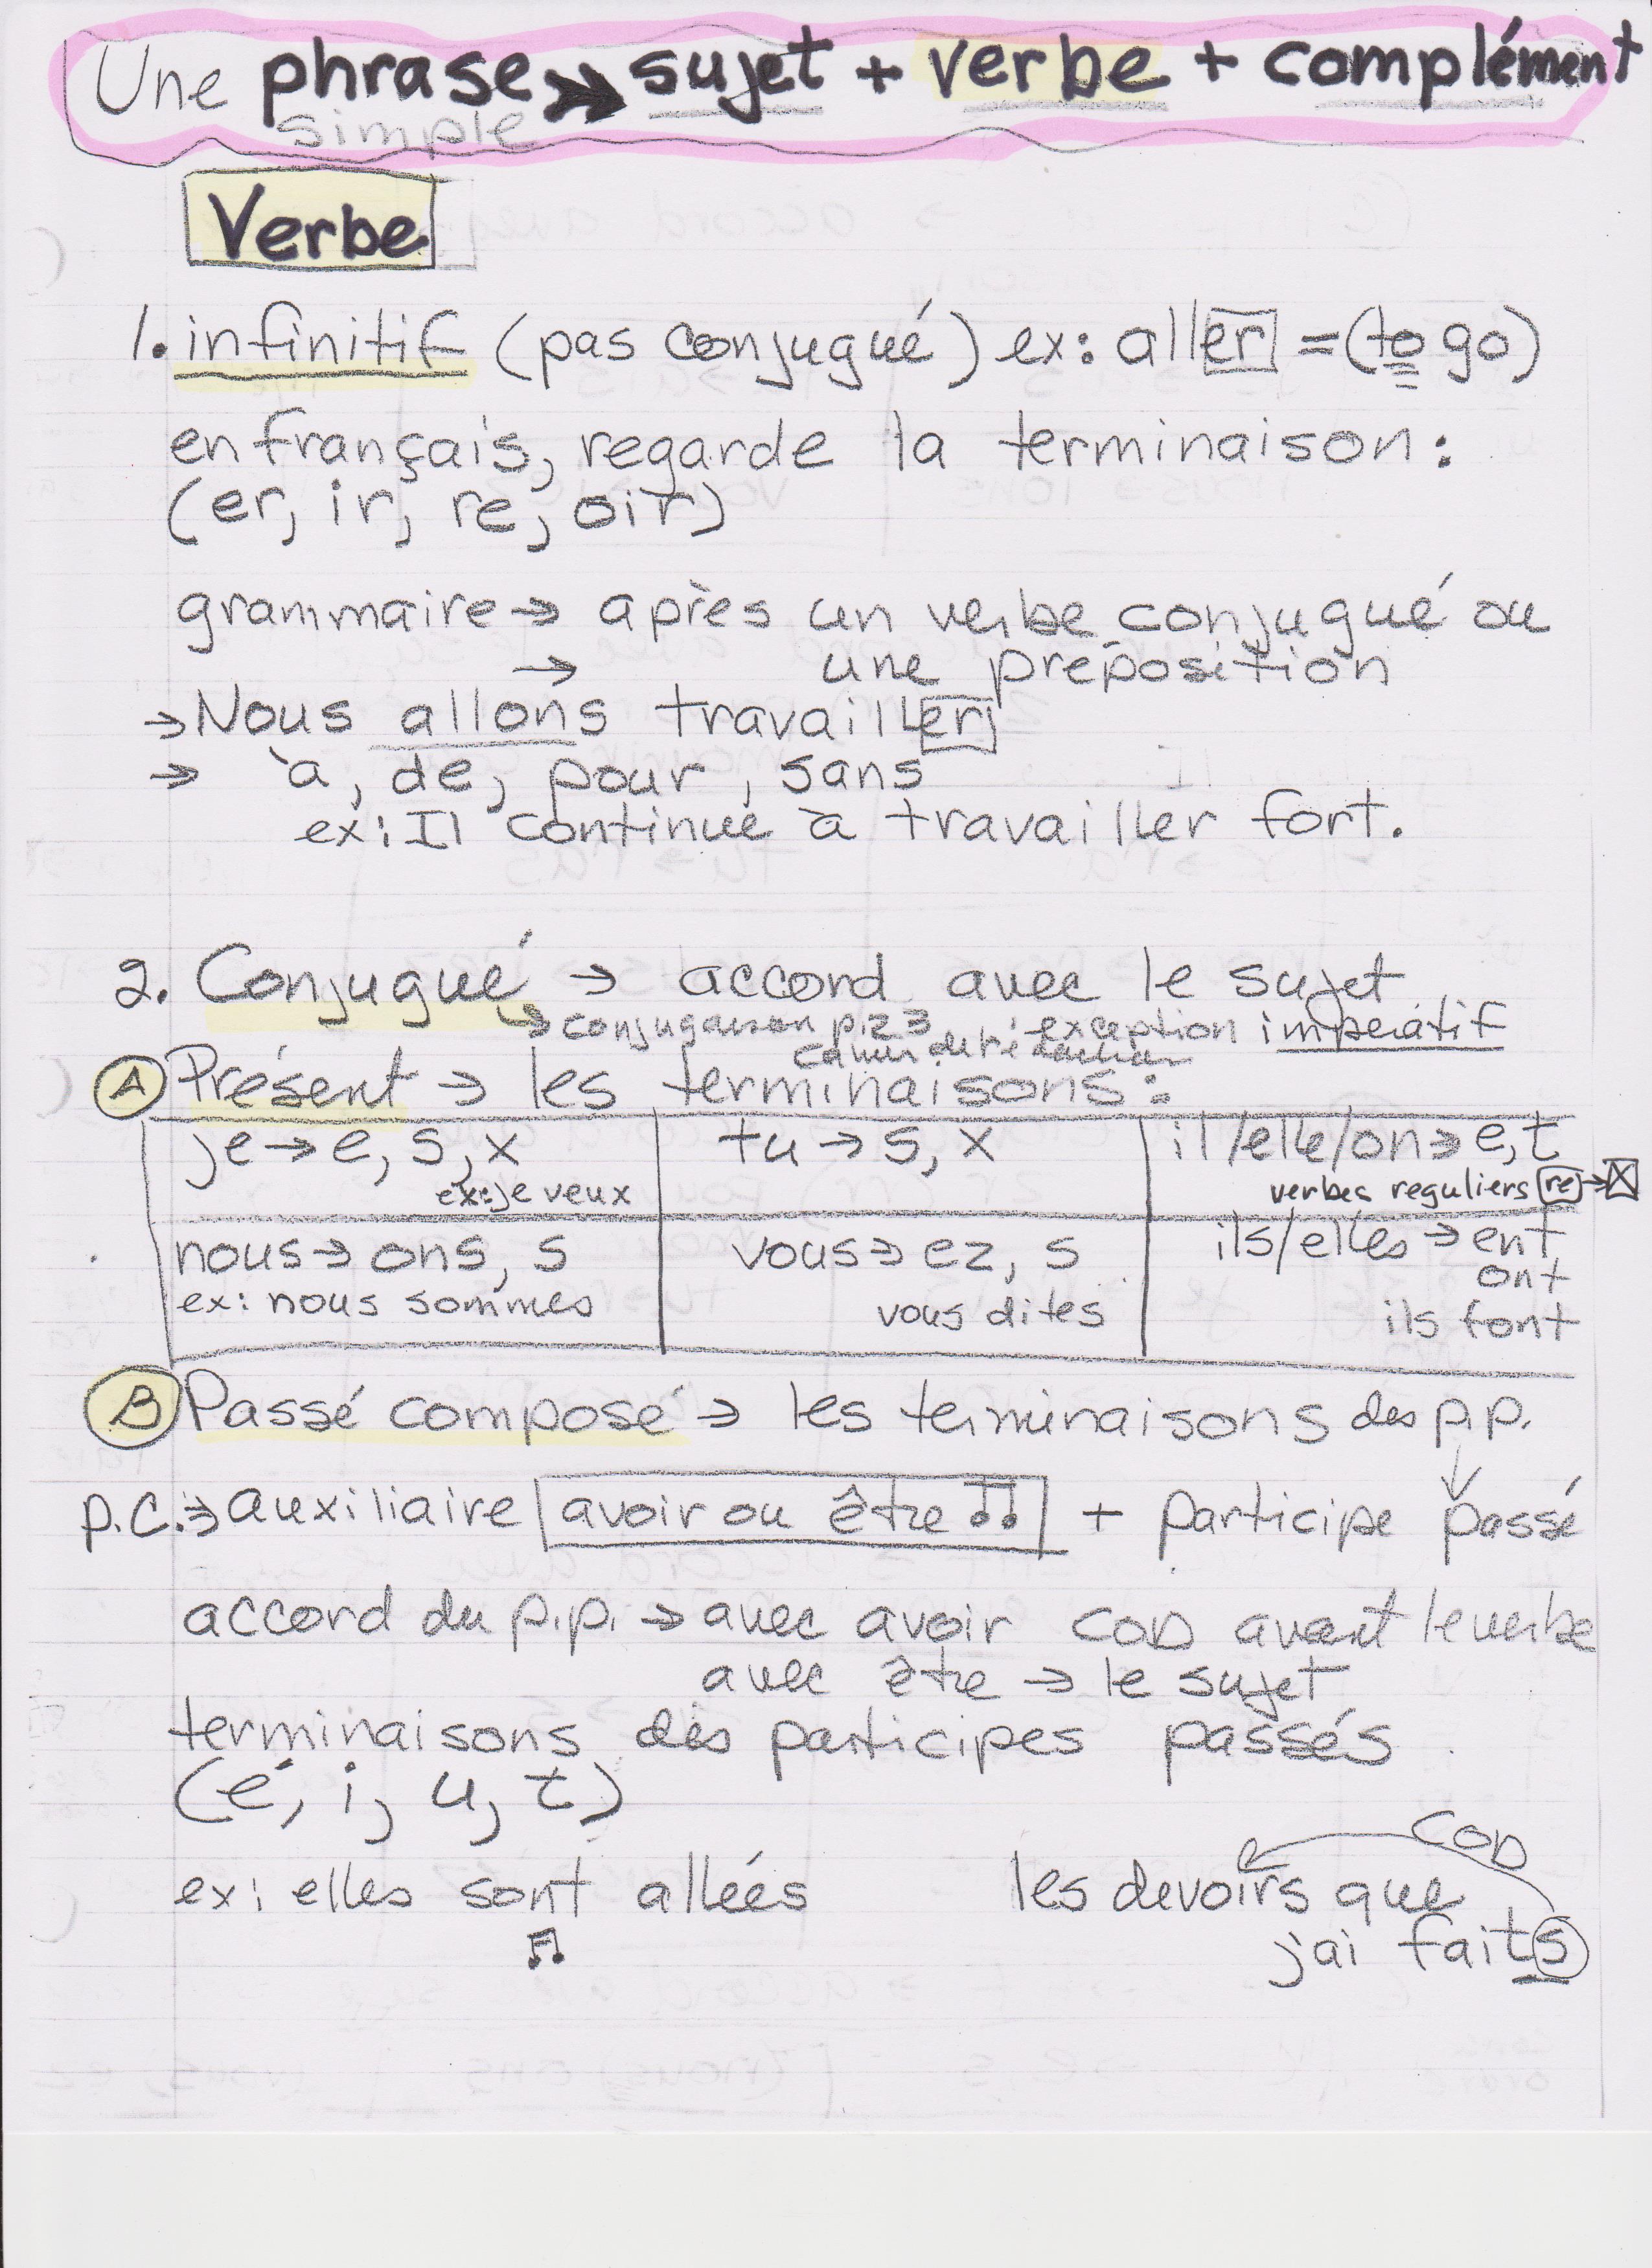 Une phrase >> sujet + verbe + complément
simple
Verbe
1. infinitif (pas conjugué) ex: aller = (to go)
en français, regarde la terminaison:
(er, ir, re, oir)
grammaire → après un verbe conjugué ou
→ une préposition
→ Nous allons travailler
→ à, de, pour, sans
ex: Il continue à travailler fort.
2. Conjugué → accord avec le sujet
→ conjugaison p.23 exception impératif
A Présent → les terminaisons:
je → e, s, x
ex: je veux
tu → s, x
il/elle/on → e, t
verbes reguliers re → X
nous → ons, s
ex: nous sommes
vous → ez, s
vous dites
ils/elles → ent
ont
ils font
B Passé composé → les terminaisons des p.p.
p.c. → auxiliaire avoir ou être ♫ + participe passé
accord du p.p. → avec avoir COD avant le verbe
avec être → le sujet
terminaisons des participes passés
(é, i, u, t)
ex: elles sont allées
♫
COD
les devoirs que
j'ai faits